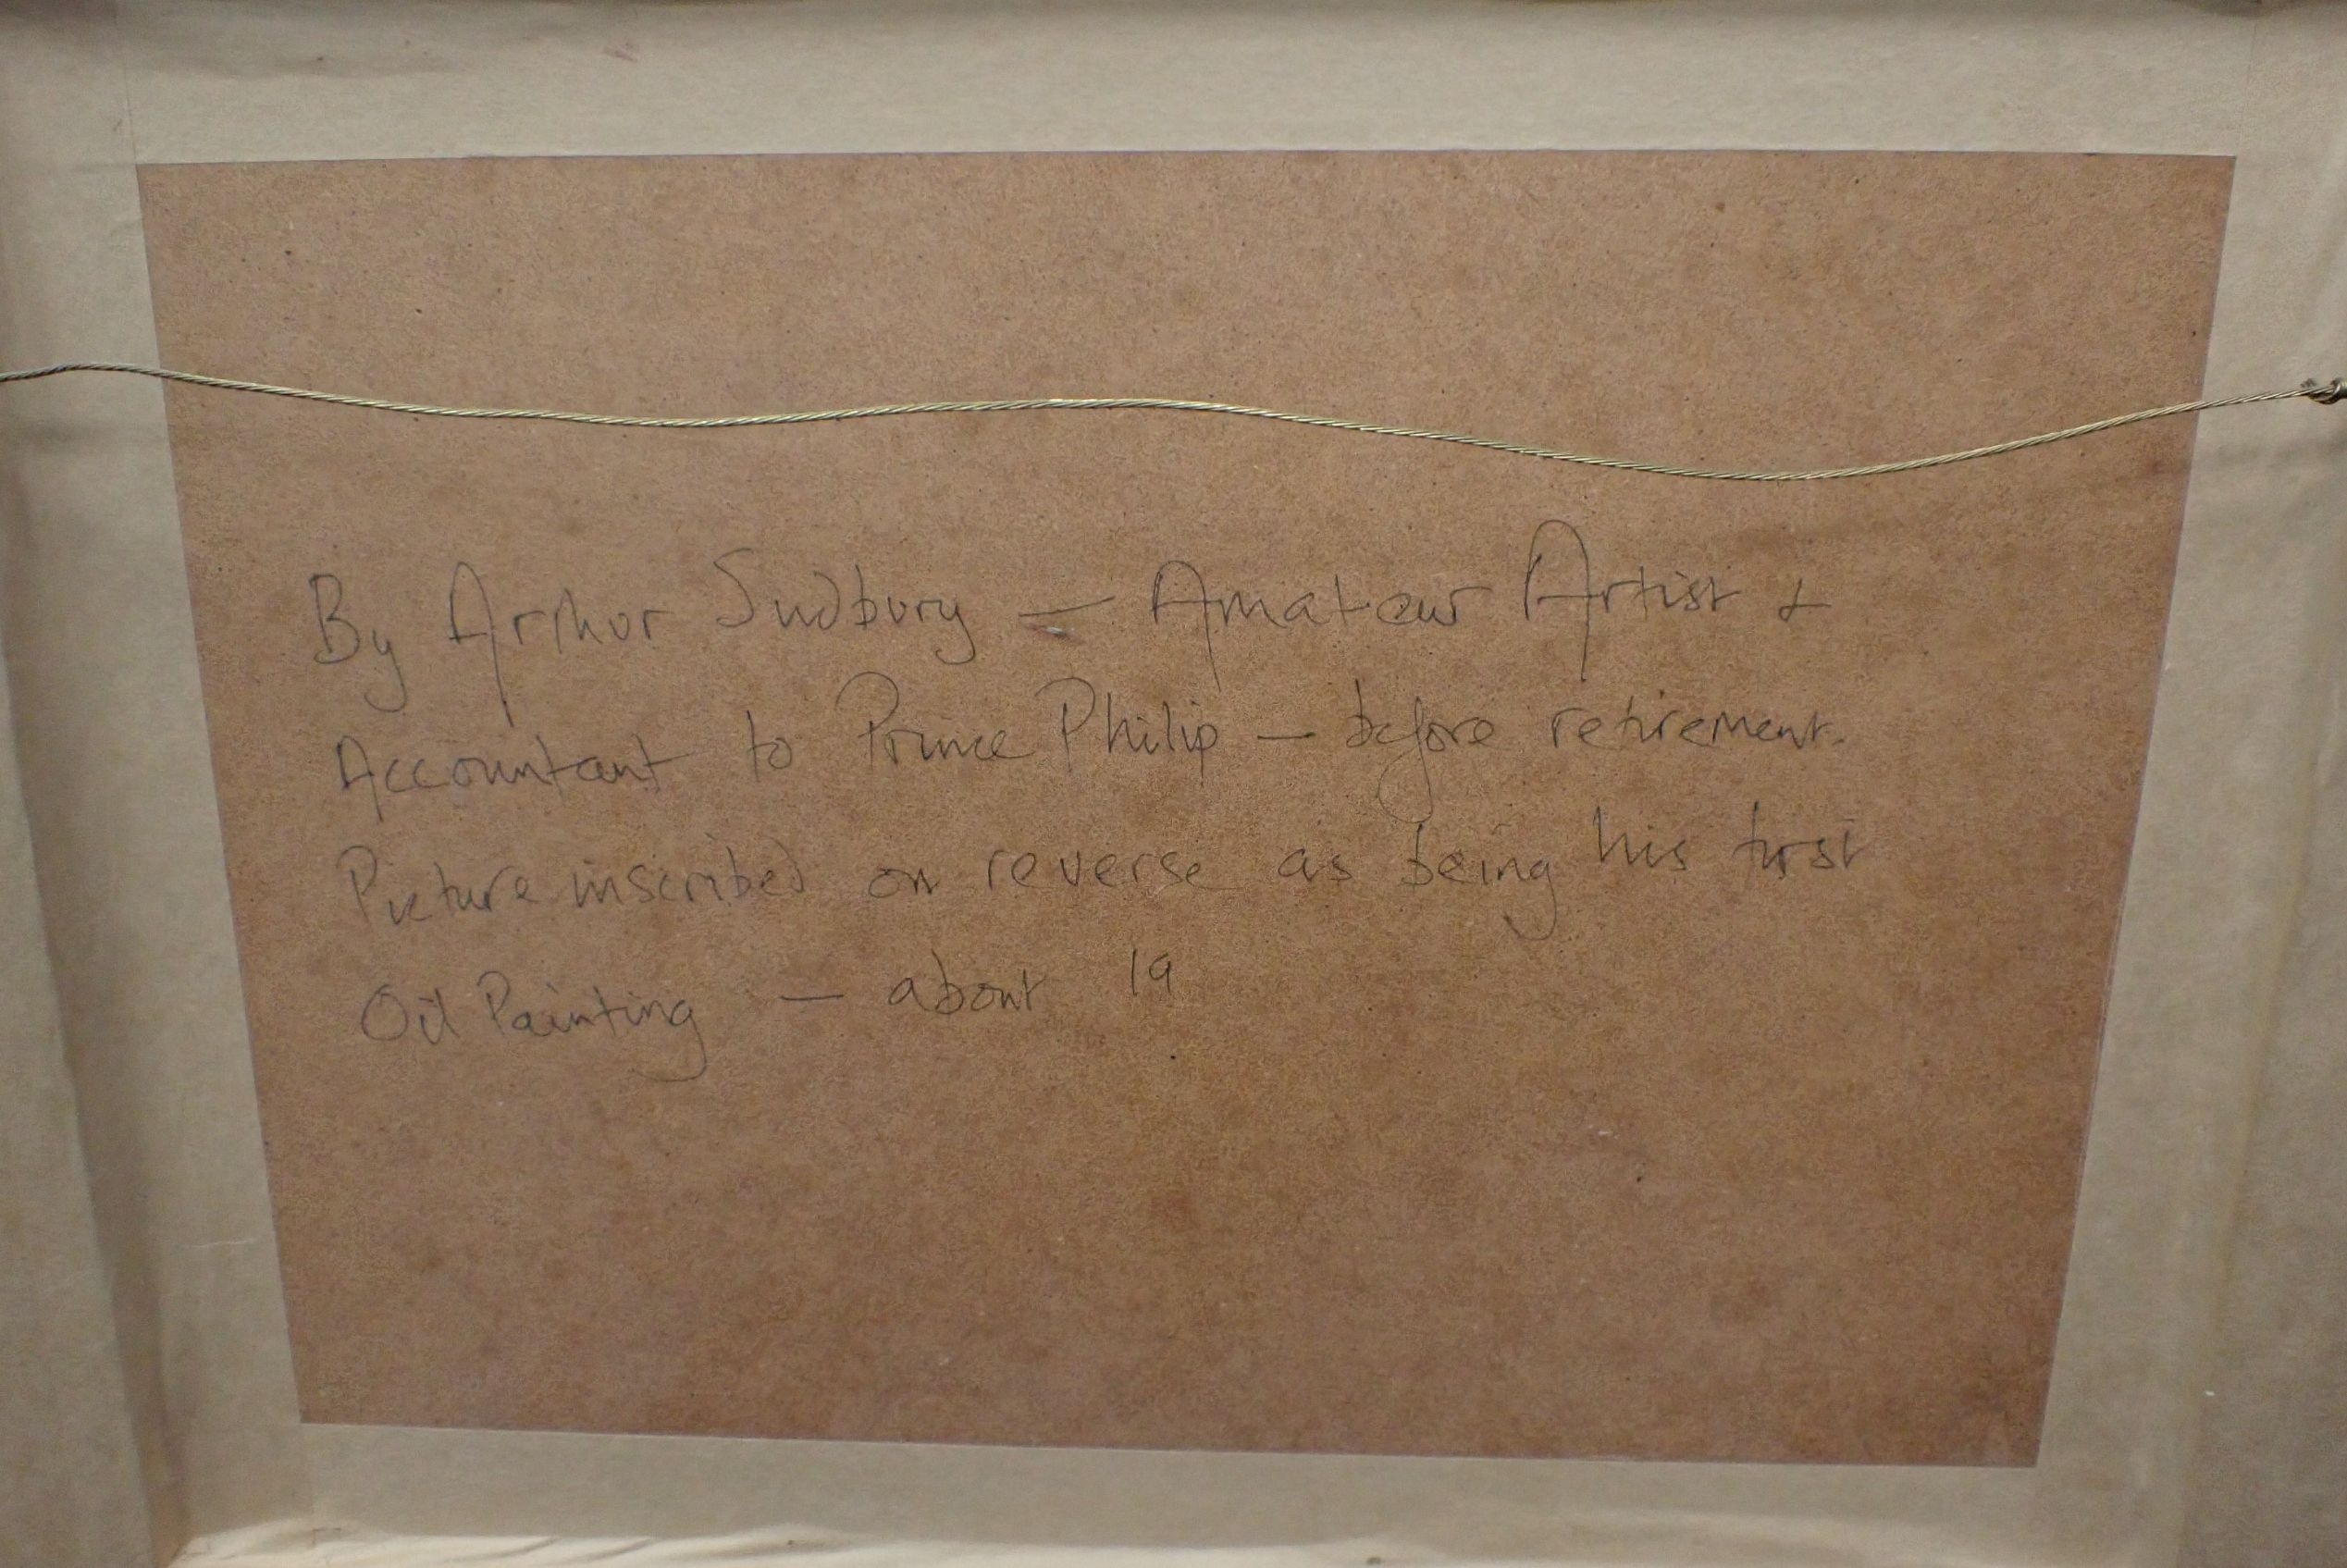 By Arthur Sudbury — Amateur Artist &
Accountant to Prince Philip — before retirement.
Picture inscribed on reverse as being his first
Oil Painting — about 19